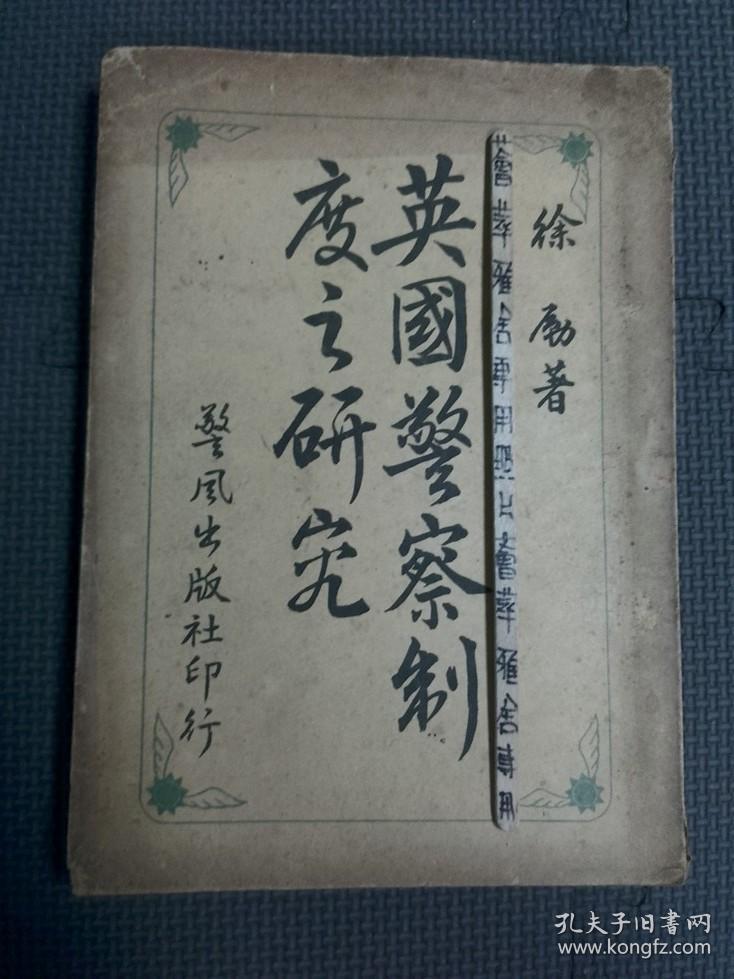 徐励著
薈萃雅舍專用照片薈萃雅舍專用
英國警察制
度之研究
警風出版社印行
孔夫子旧书网
www.kongfz.com